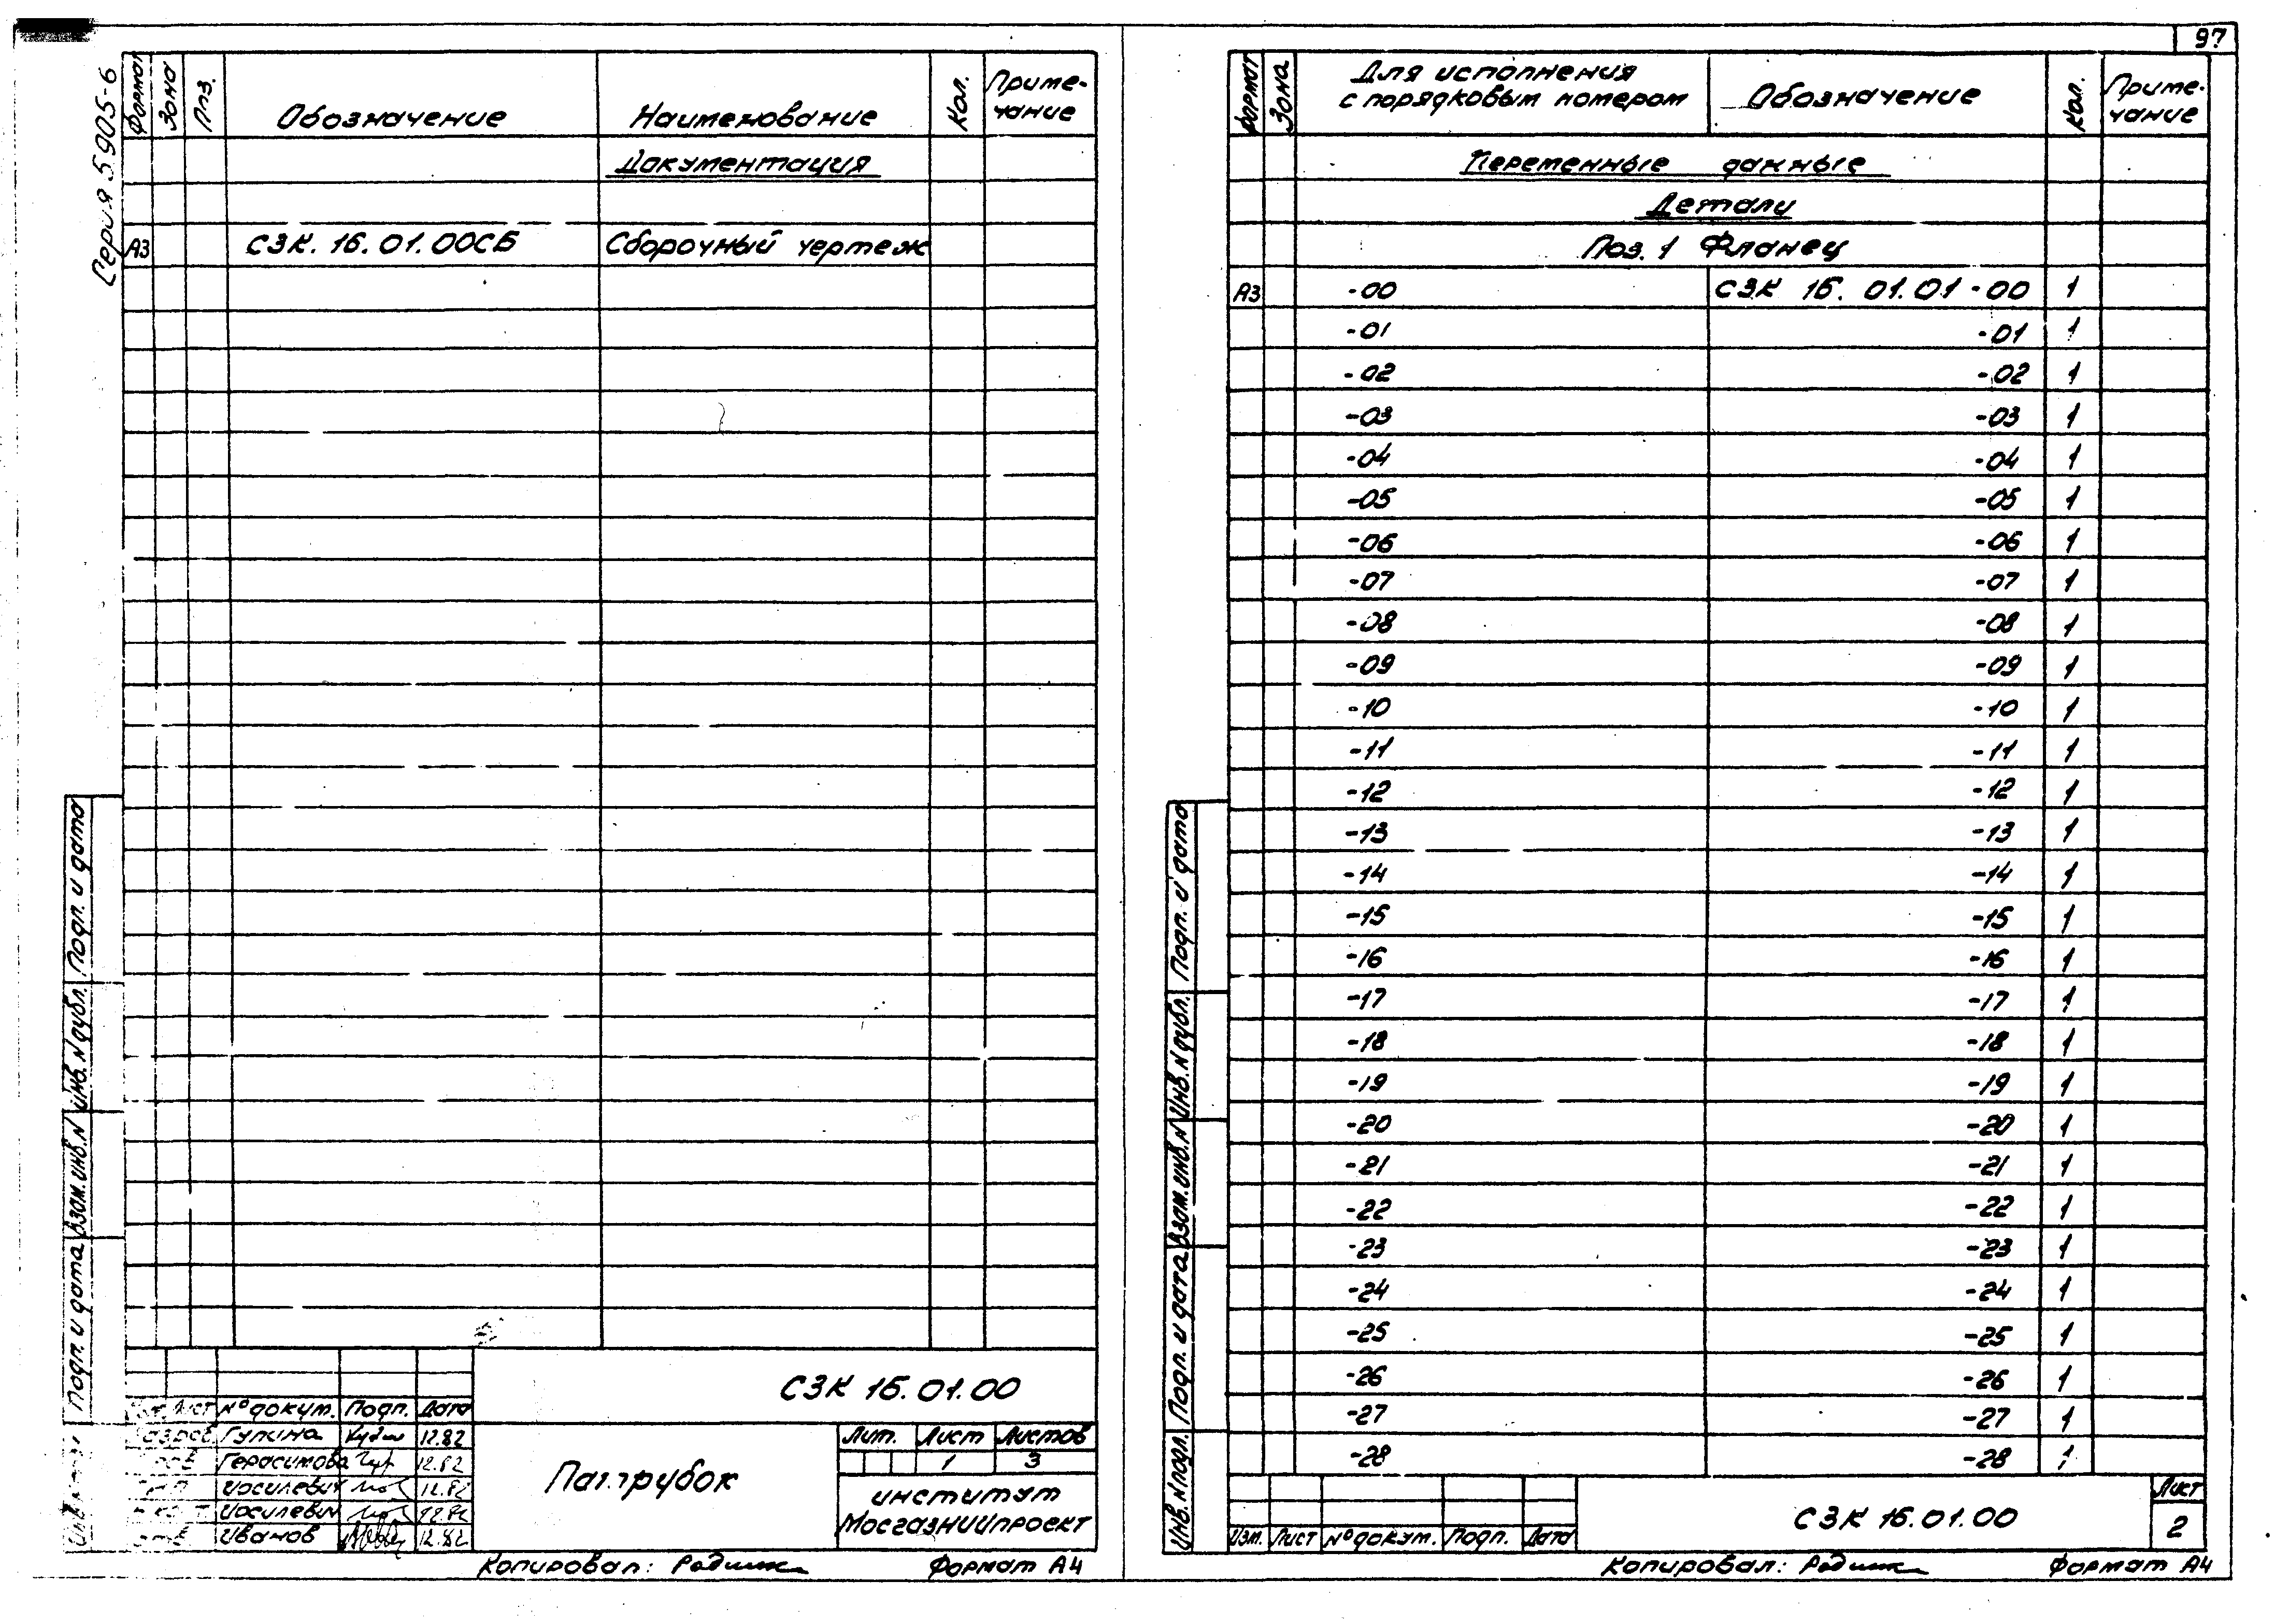 97
Серия 5.905-6
Формат Зона Поз. Обозначение Наименование Кол. Приме-
чание
Документация
А3 СЗК. 16. 01. 00СБ Сборочный чертеж
СЗК 16.01.00
Лист № докум. Подп. Дата
Гулина 12.82
Герасимова 12.82
Иосилевич 12.82
Иосилевич 12.82
Иванов 12.82
Патрубок
Лит. Лист Листов
1 3
институт
МосгазНИИпроект
Копировал: Формат А4
Подп. и дата
Инв. N дубл.
Взам. инв. N
Подп. и дата
Формат Зона Для исполнения
с порядковым номером Обозначение Кол. Приме-
чание
Переменные данные
Детали
Поз. 1 Фланец
А3 -00 СЗК 16. 01.01 -00 1
-01 -01 1
-02 -02 1
-03 -03 1
-04 -04 1
-05 -05 1
-06 -06 1
-07 -07 1
-08 -08 1
-09 -09 1
-10 -10 1
-11 -11 1
-12 -12 1
-13 -13 1
-14 -14 1
-15 -15 1
-16 -16 1
-17 -17 1
-18 -18 1
-19 -19 1
-20 -20 1
-21 -21 1
-22 -22 1
-23 -23 1
-24 -24 1
-25 -25 1
-26 -26 1
-27 -27 1
-28 -28 1
Изм. Лист № докум. Подп. Дата
СЗК 16.01.00
Лист
2
Копировал: Формат А4
Подп. и дата
Инв. N дубл.
Взам. инв. N
Подп. и дата
Инв. N подл.